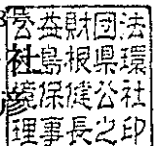 公益財団法
社
島根県環
境保健公社
彦
理事長之印